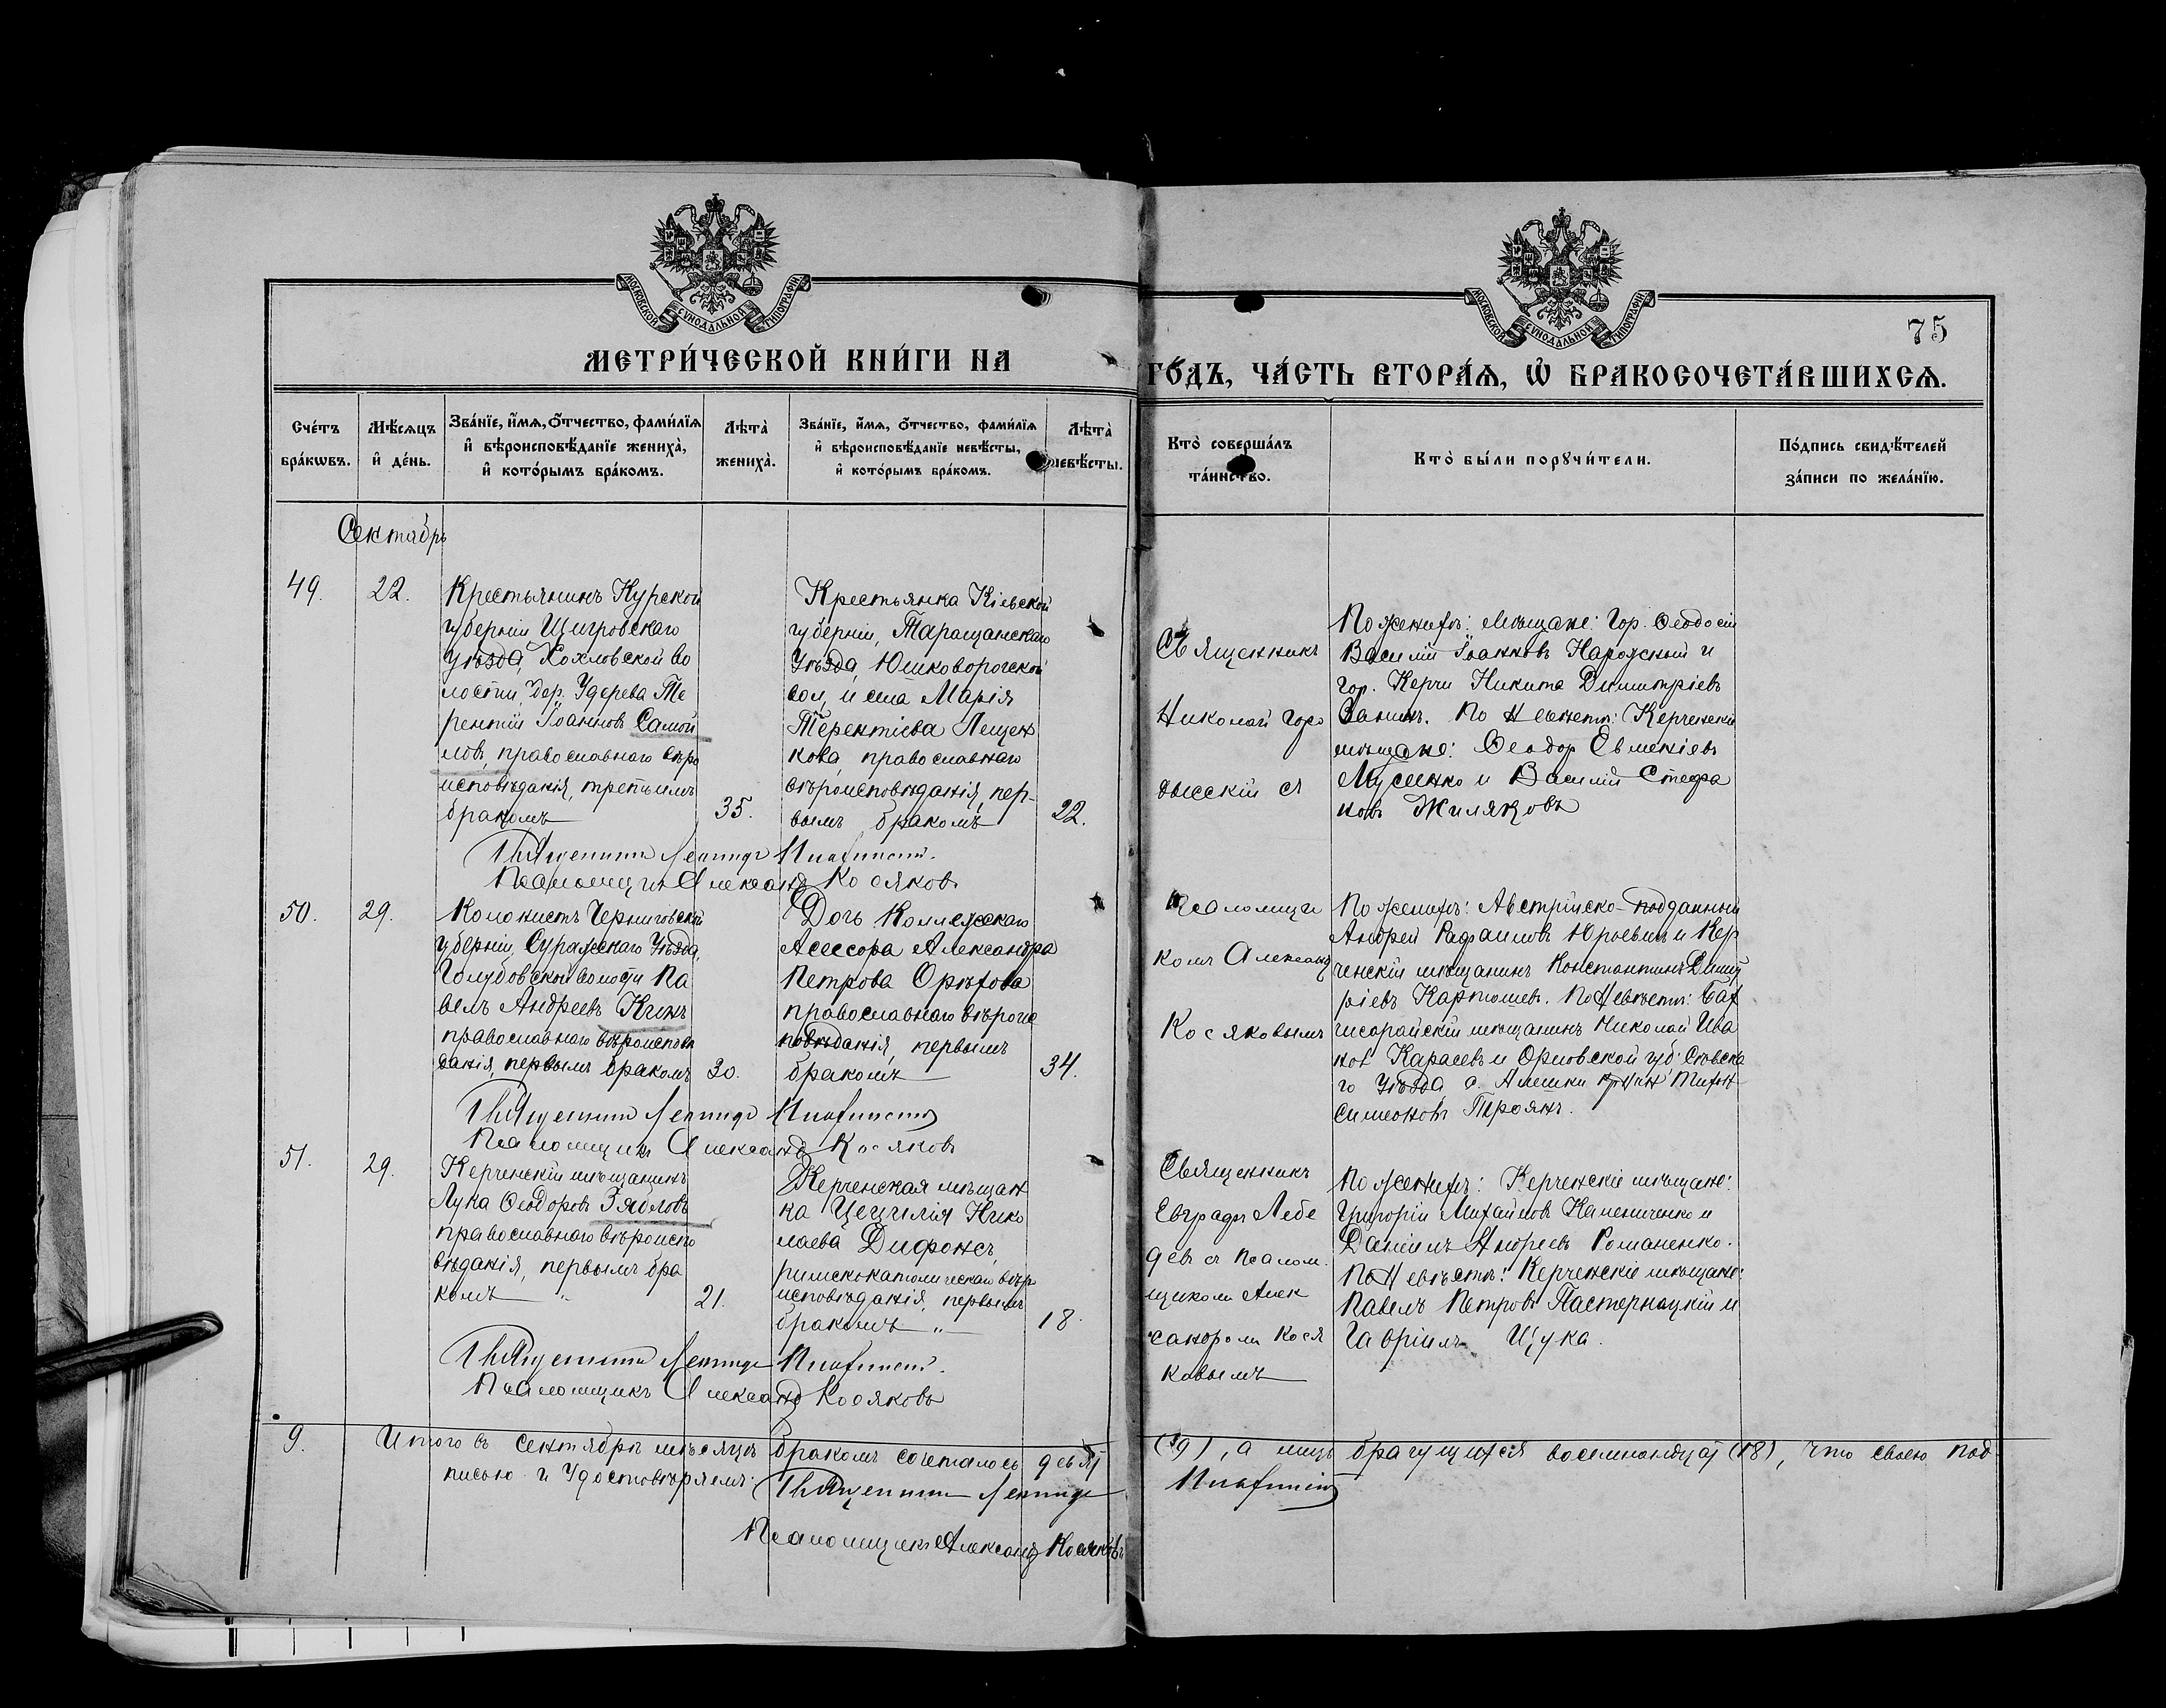 МОСКОВСКОЙ СУНОДАЛЬНОЙ ТИПОГРАФІИ.
МОСКОВСКОЙ СУНОДАЛЬНОЙ ТИПОГРАФІИ.
75
МЕТРИ́ЧЕСКОЙ КНИ́ГИ НА
ГО́ДЪ, ЧА́СТЬ ВТОРА́Ѧ, Ѡ҆ БРАКОСОЧЕТА́ВШИХСѦ.
Сче́тъ
бра́кѡвъ.
Мѣ́сѧцъ
и҆ де́нь.
Зва́нїе, и҆́мѧ, ѻ҆́тчество, фами́лїѧ
и҆ вѣроисповѣ́данїе жениха̀,
и҆ кото́рымъ бра́комъ.
Лѣта̀
жениха̀.
Зва́нїе, и҆́мѧ, ѻ҆́тчество, фами́лїѧ
и҆ вѣроисповѣ́данїе невѣ́сты,
и҆ кото́рымъ бра́комъ.
Лѣта̀
невѣ́сты.
Кто̀ соверша́лъ
та́инство.
Кто̀ бы́ли порꙋчи́тели.
По́дпись свидѣ́телей
за́писи по жела́нїю.
Сентябрь
49.
22.
Крестьянинъ Курской
губерніи Щигровскаго
уѣзда, Хохловской во
лости, дер. Удерева Те
рентій Іоанновъ Самой
ловъ, православнаго вѣро
исповѣданія, третьимъ
бракомъ
35.
Крестьянка Кіевской
губерніи, Таращанскаго
уѣзда, Юшковорогской
вол, и села Марія
Терентіева Лещен
кова, православнаго
вѣроисповѣданія, пер-
вымъ бракомъ
22.
Священникъ
Николай Горо
дысскій съ
По женихѣ: мѣщане: Гор. Ѳеодосіи
Василій Іоанновъ Нарожный и
гор. Керчи Никита Димитріевъ
Ванинъ. По невѣстѣ: Керченскіе
мѣщане: Ѳеодоръ Евменіевъ
Мусіенко и Василій Стефа
новъ Жиляковъ
Священникъ
Псаломщикъ Александръ Косяковъ
50.
29.
Колонистъ Черниговской
губерніи, Суражскаго уѣзда,
Голубовской волости Па
велъ Андреевъ Кинъ
православнаго вѣроисповѣ
данія, первымъ бракомъ
30.
Дочь Коллежскаго
Асессора Александра
Петрова Орѣхова
православнаго вѣроис
повѣданія, первымъ
бракомъ
34.
Псаломщи
комъ Александ
Косяковымъ
По женихѣ: Австрійско-подданный
Андрей Рафаиловъ Юрьевичъ и Кер
ченскій мѣщанинъ Константинъ Димит
ріевъ Картошевъ. По невѣстѣ: Бах
чисарайскій мѣщанинъ Николай Ива
нов Карасевъ и Орловской губ. Сѣвска
го уѣзда с. Алешки кр-нин Тихон
Симеоновъ Троянъ.
Священникъ
Псаломщикъ Александръ Косяковъ
51.
29.
Керченскій мѣщанинъ
Лука Ѳеодоровъ Зябловъ
православнаго вѣроиспо
вѣданія, первымъ бра
комъ
21.
Керченская мѣщан
ка Цецилія Нико
лаева Дифонсъ,
римскокатолическаго вѣро
исповѣданія, первымъ
бракомъ
18.
Священникъ
Евграфъ Лебе
девъ съ псалом
щикомъ Алек
сандромъ Кося
ковымъ
По женихѣ: Керченскіе мѣщане:
Григорій Михайловъ Каменниченко и
Даніилъ Андреевъ Романенко.
По невѣстѣ: Керченскіе мѣщане:
Павелъ Петровъ Пастернацкій и
Гавріилъ Щука.
Священникъ
Псаломщикъ Александръ Косяковъ
9.
Итого въ сентябрѣ мѣсяцѣ бракомъ сочеталось девять (9), а лицъ брачущихся восемнадцать (18), что своею под
писью и удостовѣряемъ: Священникъ
Псаломщикъ Александръ Косяковъ